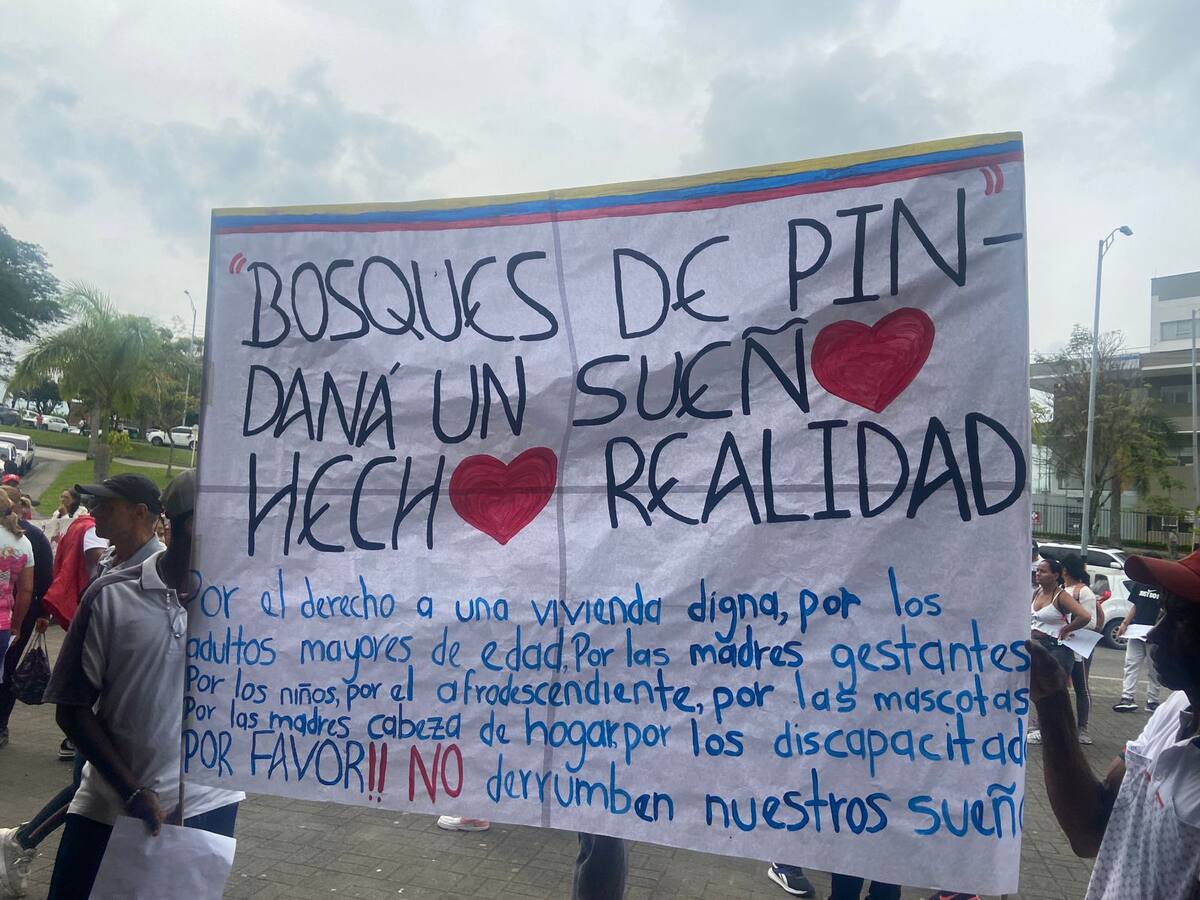 "BOSQUES DE PIN-"
DANÁ UN SUEÑ❤
HECH❤ REALIDAD
Por el derecho a una vivienda digna, por los
adultos mayores de edad, Por las madres gestantes
Por los niños, por el afrodescendiente, por las mascotas
Por las madres cabeza de hogar, por los discapacitad
POR FAVOR!! NO derrumben nuestros sueñ